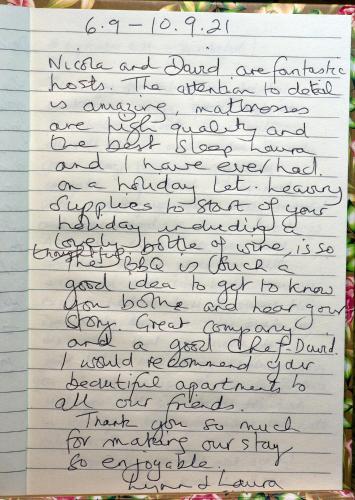 6.9 – 10.9.21
Nicola and David are fantastic
hosts. The attention to detail
is amazing, mattresses
are high quality and
the best sleep Laura
and I have ever had
on a holiday let. Leaving
supplies to start of your
holiday including a
lovely bottle of wine, is so
thoughtful.
The BBQ is such a
good idea to get to know
you bothe and hear your
story. Great company
and a good chef-David.
I would recommend your
beautiful apartments to
all our friends.
Thank you so much
for making our stay
so enjoyable.
Lynn & Laura